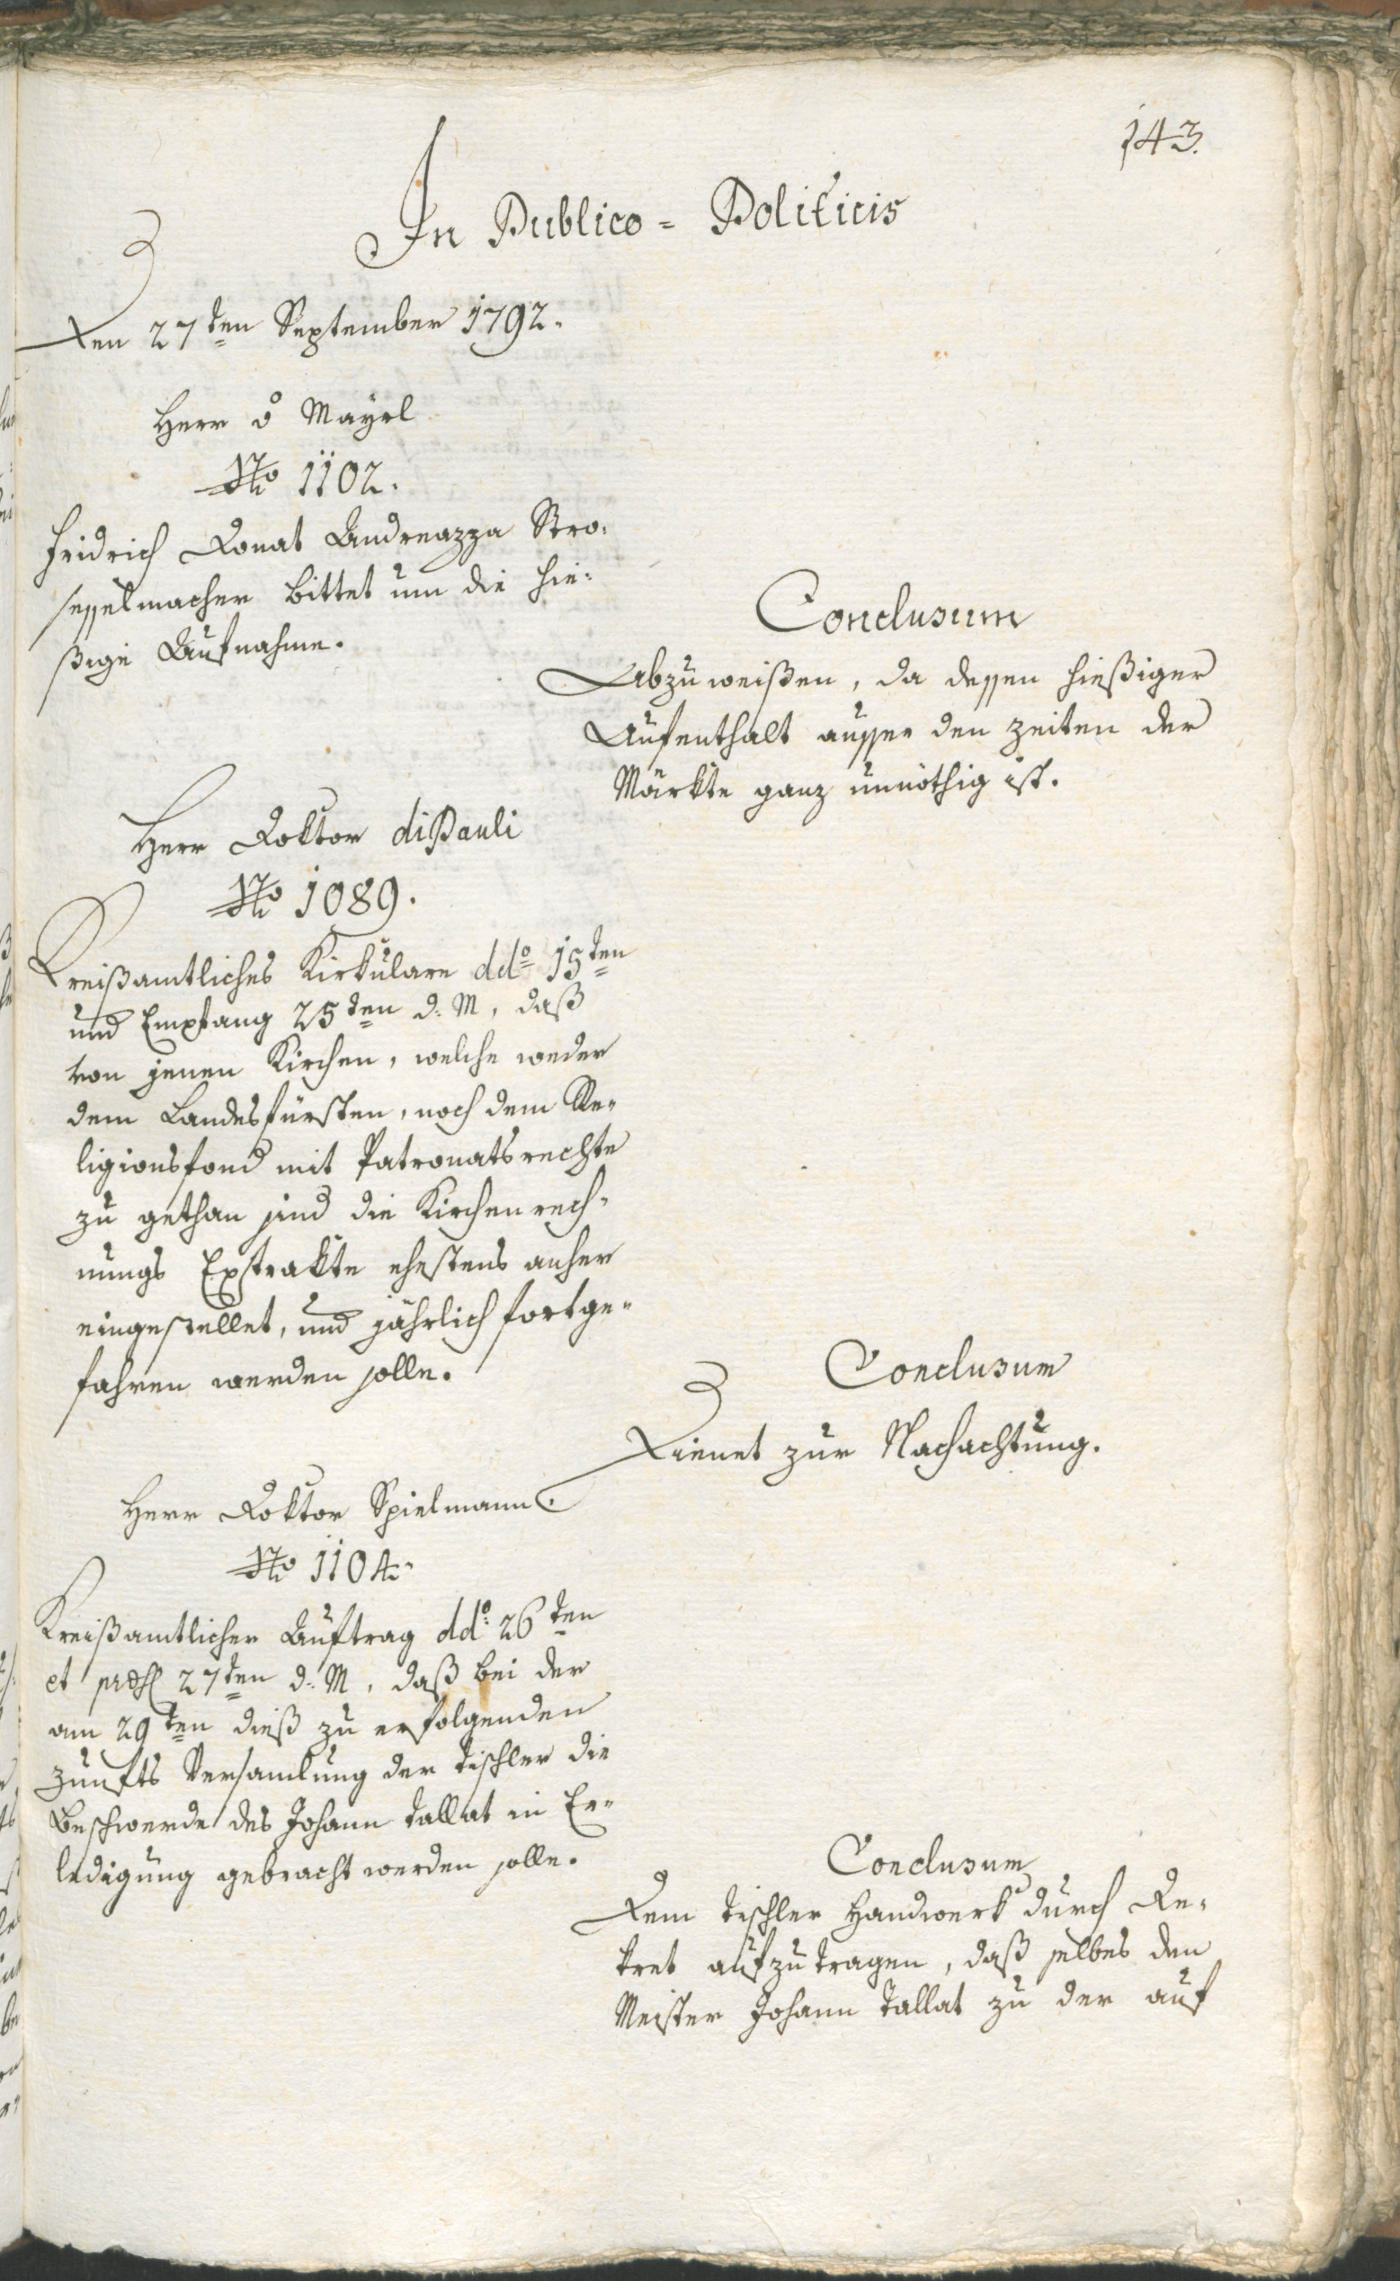 143.
In Publico = Politicis
Den 27ten September 1792.
Herr v Mayrl
No 1102.
Fridrich Donat Andreazza Stro=
sesselmacher bittet um die hie=
ßige Aufnahme.
Conclusum
Abzuweißen, da dessen hießiger
Aufenthalt ausser den Zeiten der
Märkte ganz unnöthig ist.
Herr Doktor diPauli
No 1089.
Kreißamtliches Kirkulare ddo 15ten
und Empfang 25ten d. M, daß
von jenen Kirchen, welche weder
dem Landesfürsten, noch dem Re=
ligionsfond mit Patronatsrechte
zu gethan sind die Kirchenrech=
nungs Extrakte ehestens anher
eingestellet, und jährlich fortge=
fahren werden solle.
Conclusum
Dienet zur Nachachtung.
Herr Doktor Spielmann.
No 1104.
Kreißamtlicher Auftrag ddo 26ten
et 27ten d. M, daß bei der
am 29ten dieß zu erfolgenden
Zunfts Versamlung der Tischler die
Beschwerde des Johann Tallat in Er=
ledigung gebracht werden solle.
Conclusum
Dem Tischler Handwerk durch De=
kret aufzutragen, daß selbes den
Meister Johann Tallat zu der auf